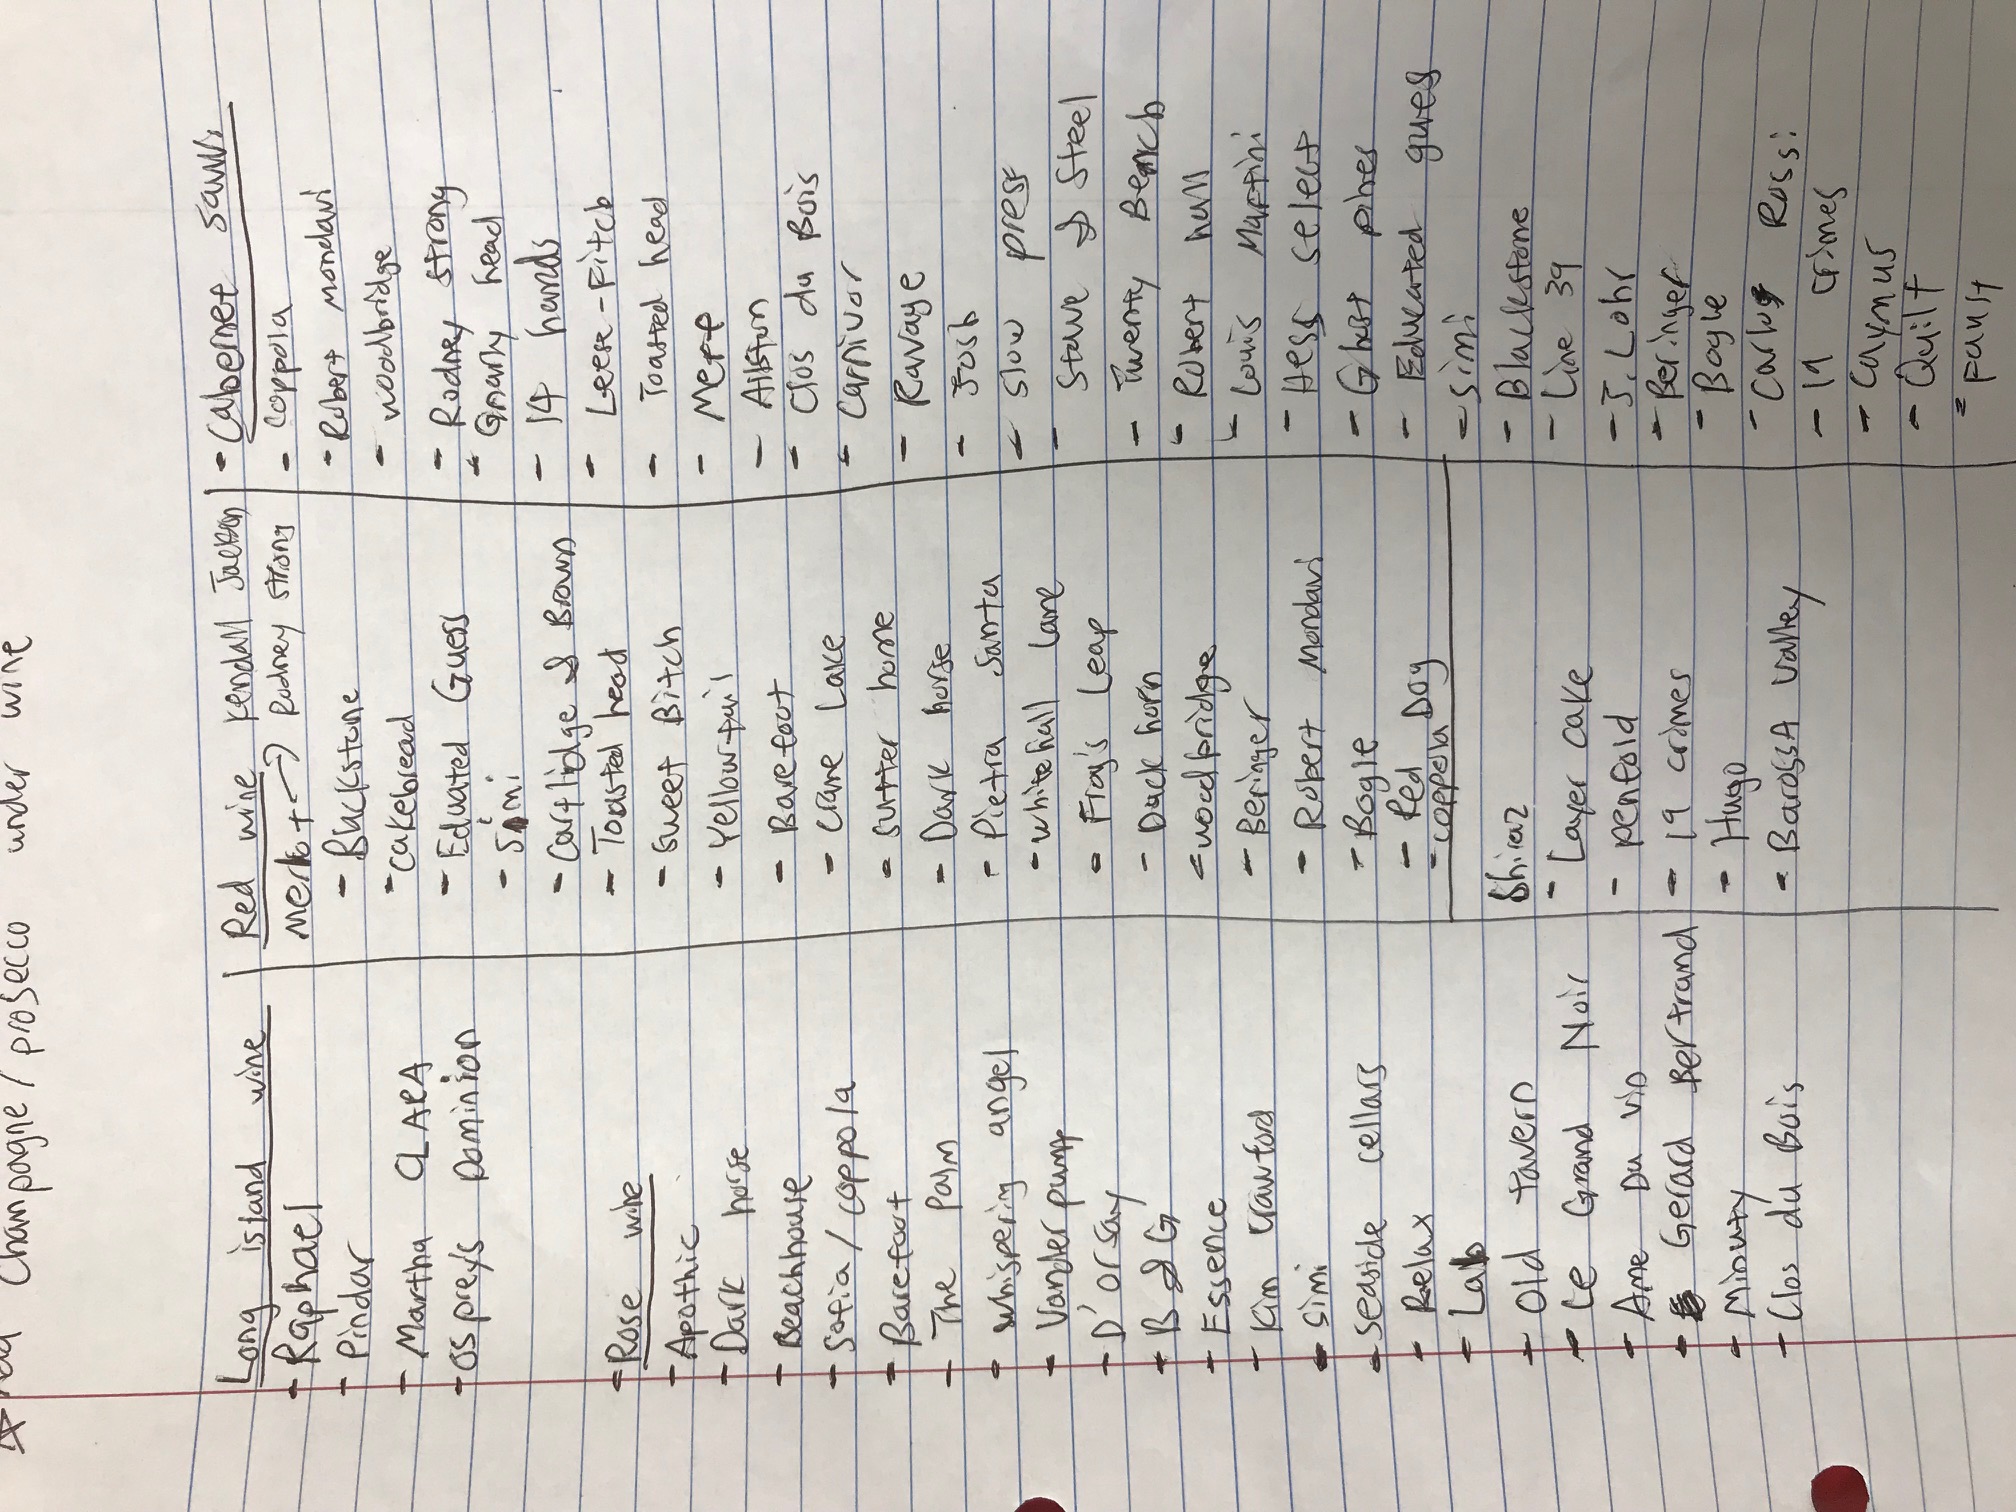 Champagne / prosecco under wine
Long island wine
- Raphael
- Pindar
- Martha CLARA
- Osprey's Dominion
- Rose wine
- Apothic
- Dark horse
- Beachhouse
- Sofia / coppola
- Barefoot
- The Palm
- whispering angel
- Vander pump
- D'orsay
- B & G
- Essence
- Kim Crawford
- Simi
- Seaside cellars
- Relax
- Lab
- Old Tavern
- Le Grand Noir
- Ame Du Vin
- Gerard Bertrand
- Minuty
- Clos du Bois
Red wine Kendall Jackson
Merlot → Rodney strong
- Blackstone
- Cakebread
- Eduated Guess
- Simi
- Cartlidge & Brown
- Toasted head
- Sweet Bitch
- Yellow tail
- Barefoot
- Crane Lake
- Sutter home
- Dark horse
- Pietra Santa
- Whitehall Lane
- Frog's Leap
- Duck horn
- woodbridge
- Beringer
- Robert Mondavi
- Bogle
- Red Dog
- coppola
Shiraz
- Layer cake
- penfold
- 19 crimes
- Hugo
- BarossA Valley
- Cabernet Sauvi
- Coppola
- Robert Mondavi
- woodbridge
- Rodney strong
- Gnarly head
- 14 hands
- Leese-Fitch
- Toasted head
- Clos du Bois
- Carnivor
- Ravage
- Josh
- Slow press
- Stave & Steel
- Twenty Bench
- Robert hall
- Louis Martini
- Hess select
- Ghost pines
- Educated gues
- Simi
- Blackstone
- Line 39
- J. Lohr
- Beringer
- Bogle
- Carlos Rossi
- 19 crimes
- Caymus
- Quilt
- Faust